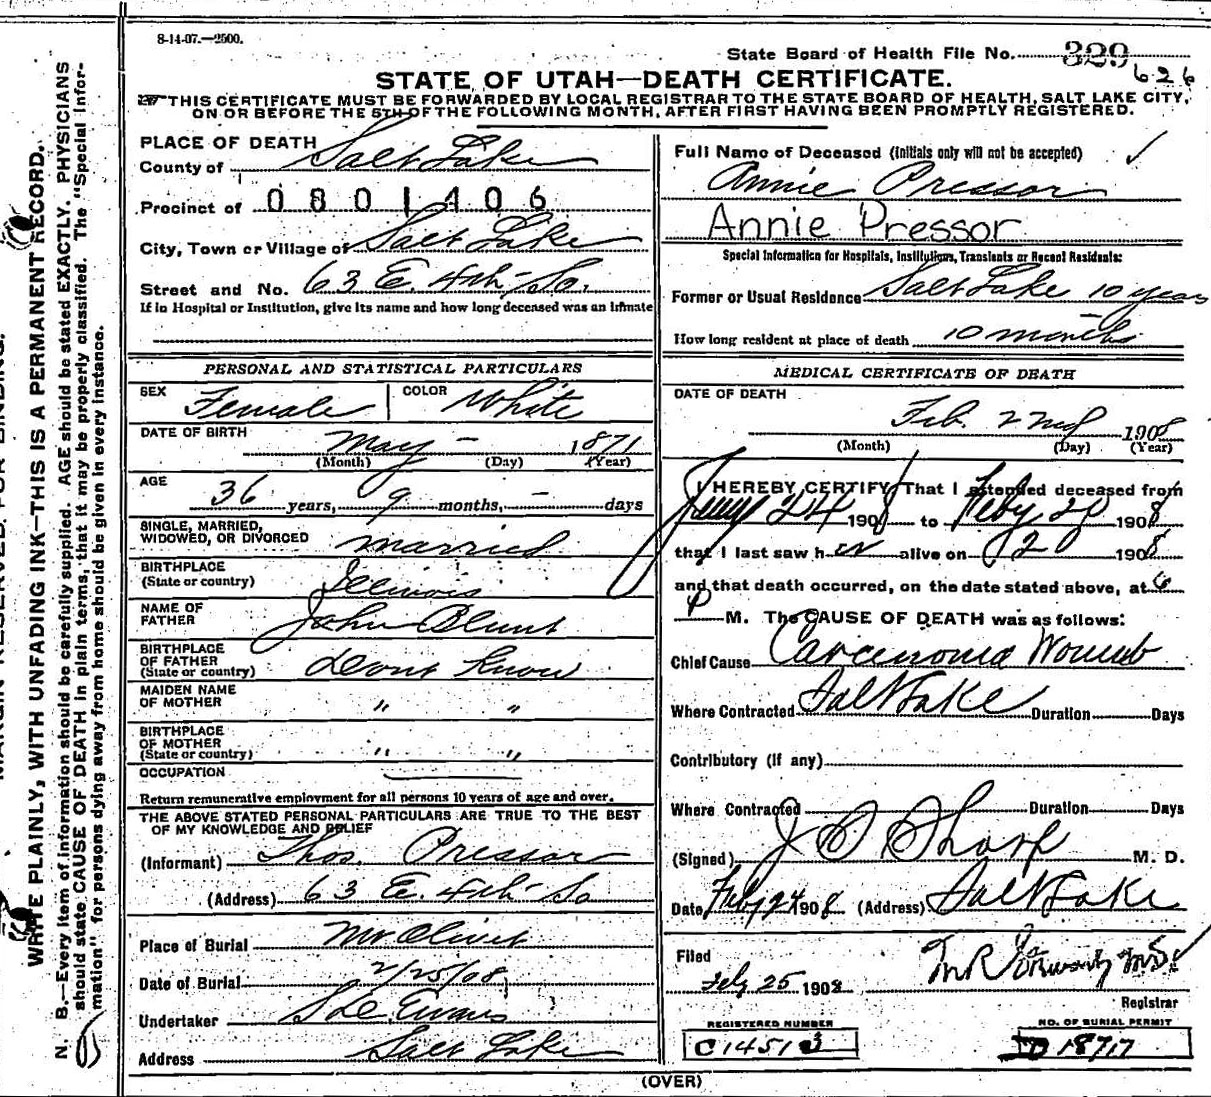 8-14-07.—2500.
State Board of Health File No. 329
626
STATE OF UTAH—DEATH CERTIFICATE.
THIS CERTIFICATE MUST BE FORWARDED BY LOCAL REGISTRAR TO THE STATE BOARD OF HEALTH, SALT LAKE CITY,
ON OR BEFORE THE 5TH OF THE FOLLOWING MONTH, AFTER FIRST HAVING BEEN PROMPTLY REGISTERED.
PLACE OF DEATH
County of Salt Lake
Precinct of 0801406
City, Town or Village of Salt Lake
Street and No. 63 E. 4th So.
If in Hospital or Institution, give its name and how long deceased was an inmate
PERSONAL AND STATISTICAL PARTICULARS
SEX Female COLOR White
DATE OF BIRTH May — 1871
(Month) (Day) (Year)
AGE 36 years, 9 months, — days
SINGLE, MARRIED,
WIDOWED, OR DIVORCED married
BIRTHPLACE
(State or country) Illinois
NAME OF
FATHER John Blunt
BIRTHPLACE
OF FATHER
(State or country) dont know
MAIDEN NAME
OF MOTHER " "
BIRTHPLACE
OF MOTHER
(State or country) " "
OCCUPATION
Return remunerative employment for all persons 10 years of age and over.
THE ABOVE STATED PERSONAL PARTICULARS ARE TRUE TO THE BEST
OF MY KNOWLEDGE AND BELIEF
(Informant) Thos. Pressor
(Address) 63 E. 4th So
Place of Burial Mt Olivet
Date of Burial 2/25/08
Undertaker Evans
Address Salt Lake
Full Name of Deceased (initials only will not be accepted) ✓
Annie Pressor
Annie Pressor
Special Information for Hospitals, Institutions, Transients or Recent Residents:
Former or Usual Residence Salt Lake 10 years
How long resident at place of death 10 months
MEDICAL CERTIFICATE OF DEATH
DATE OF DEATH
Feb. 22nd 1908
(Month) (Day) (Year)
I HEREBY CERTIFY That I attended deceased from
24 1908 to Feby 20 1908
that I last saw her alive on 20 1908
and that death occurred, on the date stated above, at 6
P M. The CAUSE OF DEATH was as follows:
Chief Cause Carcinoma Womb
Where Contracted Salt Lake Duration Days
Contributory (if any)
Where Contracted Duration Days
(Signed) J O Sharp M. D.
Date Feby 24 1908 (Address) Salt Lake
Filed
Feby 25 1908
Registrar
REGISTERED NUMBER
C14513
NO. OF BURIAL PERMIT
D 18717
(OVER)
WRITE PLAINLY, WITH UNFADING INK—THIS IS A PERMANENT RECORD.
N. B.—Every item of information should be carefully supplied. AGE should be stated EXACTLY. PHYSICIANS
should state CAUSE OF DEATH in plain terms, that it may be properly classified. The "Special Infor-
mation" for persons dying away from home should be given in every instance.